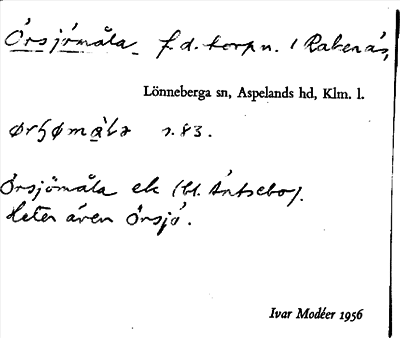 Örsjömåla f.d. torp n. i Rabenäs,
Lönneberga sn, Aspelands hd, Klm. l.
s. 83.
Örsjömåla ek (bl. Äntsebo).
Heter även Örsjö.
Ivar Modéer 1956